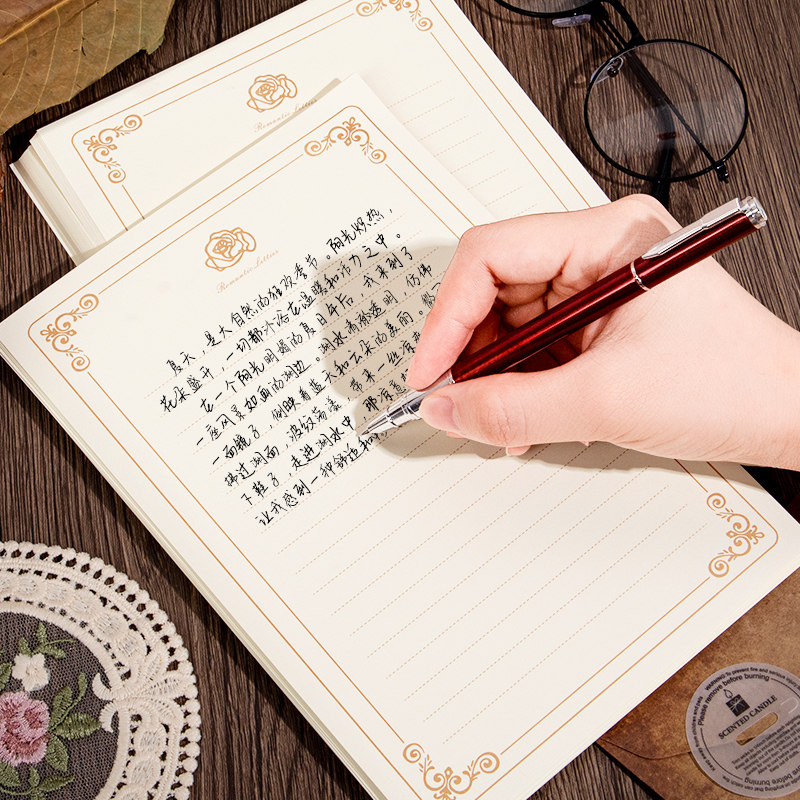 Romantic Letters
Romantic Letters
夏天,是大自然的狂欢季节。阳光炽热,
花朵盛开,一切都沐浴在温暖和活力之中。
在一个阳光明媚的夏日午后,我来到了
一座风景如画的湖边。湖水清澈透明,仿佛
一面镜子,倒映着蓝天和云朵的美丽。
拂过湖面,波纹荡漾,带来一丝清
下鞋子,走进湖水中,那清
让我感到一种舒适和
WARNING: To prevent fire and serious
Please remove before burning
SCENTED CANDLE